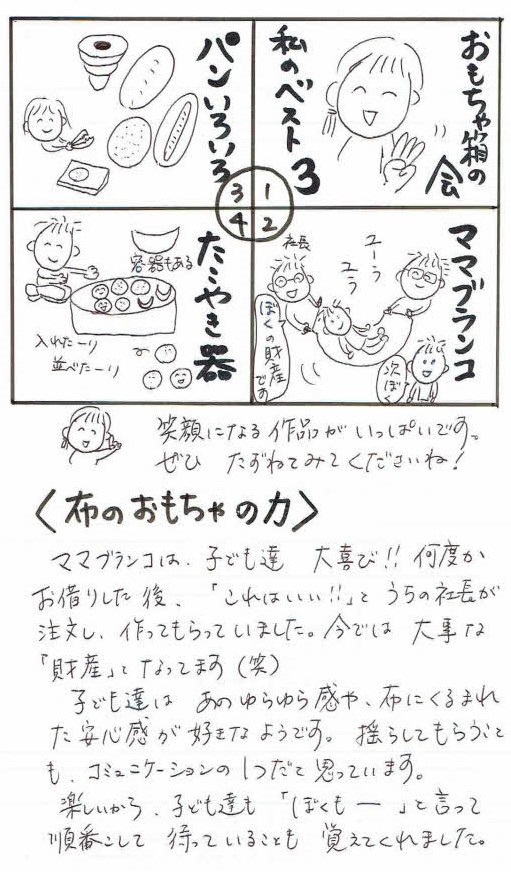 おもちゃ箱の会
私のベスト3
1
2
3
4
ママブランコ
社長
ユーラ
ユラ
ぼくの財産です
次ぼく
パンいろいろ
たこやき器
容器もある
入れたーり
並べたーり
笑顔になる作品がいっぱいです。
ぜひ たずねてみてくださいね!
〈布のおもちゃの力〉
ママブランコは、子ども達 大喜び!! 何度か
お借りした後、「これはいい!!」と うちの社長が
注文し、作ってもらっていました。今では 大事な
「財産」となってます(笑)
子ども達は あのゆらゆら感や、布にくるまれ
た安心感が好きなようです。揺らしてもらうこと
も、コミュニケーションの1つだと思っています。
楽しいから、子ども達も「ぼくもー」と言って
順番こして 待っていることも 覚えてくれました。